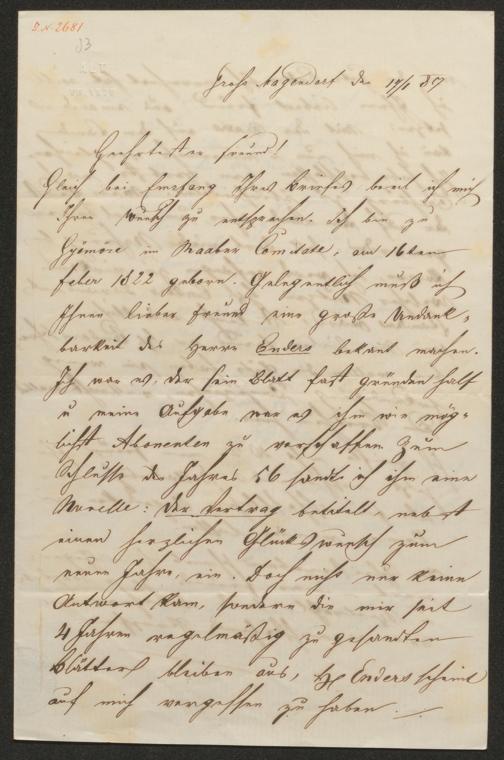 I.N. 2681
23
Groß Magendorf den 17/1 857
Geehrtester Freund!
Gleich bei Empfang Ihres Briefes beeil ich mich
Ihren Wunsch zu entsprechen. Ich bin zu
Gyömöre im Raaber Comitate, am 16ten
Feber 1822 geboren. Gelegentlich muß ich
Ihnen lieber Freund eine große Undank-
barkeit des Herrn Enders bekant machen.
Ich war es der sein Blatt fast gründen half
u meine Aufgabe war es ihm wie mög-
lichst Abonenten zu verschaffen Zum
Schlusse des Jahres 56 sandte ich ihm eine
Novelle: Der Vertrag betitelt, nebst
einen herzlichen Glückswunsch zum
neuen Jahre, ein. Doch nicht nur keine
Antwort kam, sondern die mir seit
4 Jahren regelmäßig zu gesandten
Blätter bleiben aus, H Enders scheint
auf mich vergessen zu haben.